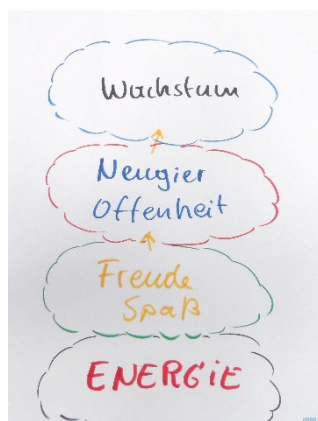 Wachstum
Neugier
Offenheit
Freude
Spaß
ENERGiE